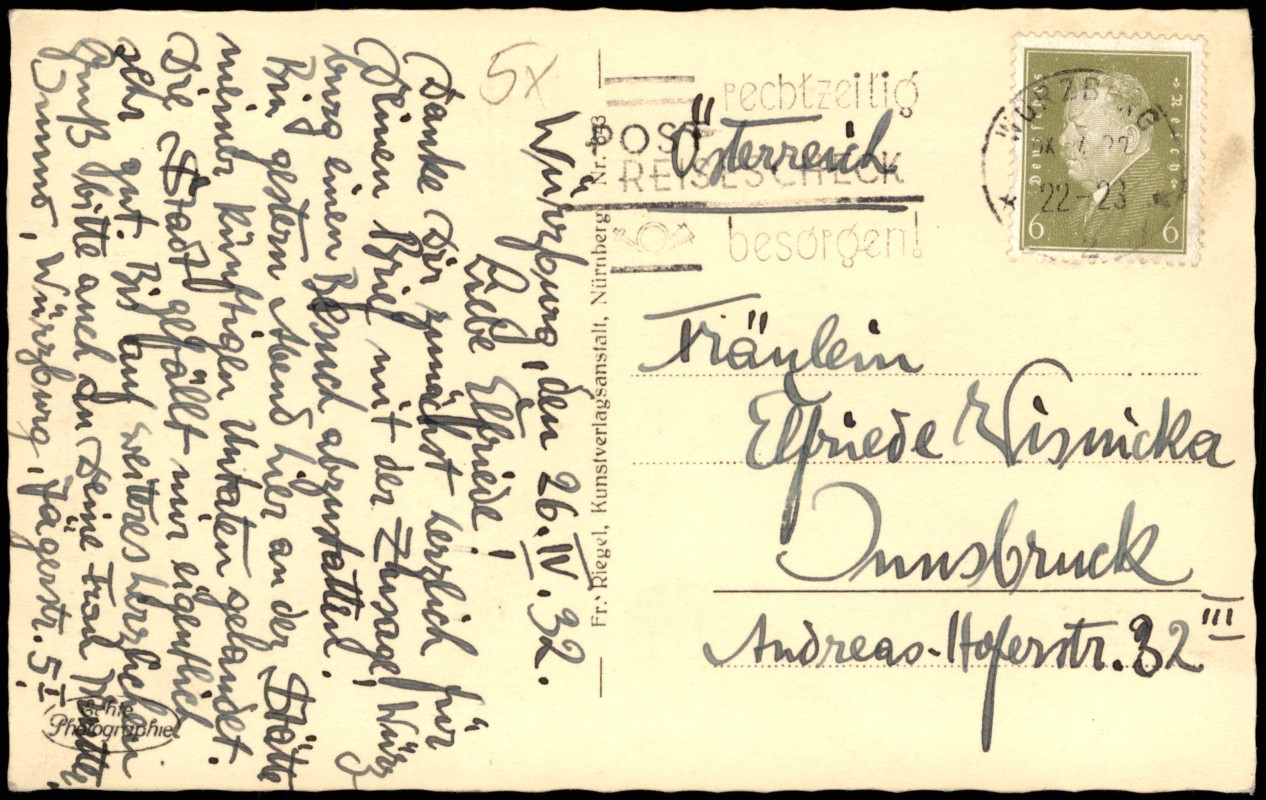 5x
Würzburg, den 26. IV. 32.
Liebe Elfriede!
Danke Dir zunächst herzlich für
Deinen Brief mit der Zusage, Würz
burg einen Besuch abzustatten!
Bin gestern Abend hier an der Stätte
meiner künftigen Untaten gelandet.
Die Stadt gefällt mir eigentlich
sehr gut. Bis auf weitres herzlichen
Gruß bitte auch an Deine Frau Mutter,
Würzburg, Jägerstr. 5 I
Echte
Photographie
Fr. Riegel, Kunstverlagsanstalt, Nürnberg Nr.
rechtzeitig
POST
REISESCHECK
besorgen!
Österreich
WÜRZBURG
22-23
2
Deutsches Reich
6 6
Fräulein
Elfriede Wisnicka
Innsbruck
Andreas-Hoferstr. 32 III